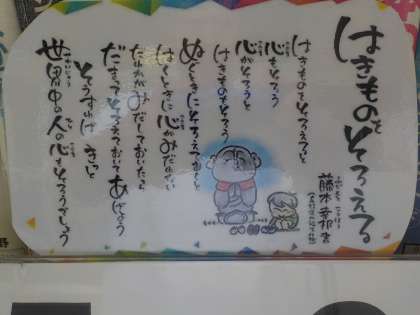 はきものをそろえる
藤本幸邦
はきものをそろえると
心もそろう
心がそろうと
はきものもそろう
ぬぐときにそろえておくと
はくときに心がみだれない
だれかがみだしておいたら
だまってそろえておいてあげよう
そうすればきっと
世界中の人の心もそろうでしょう